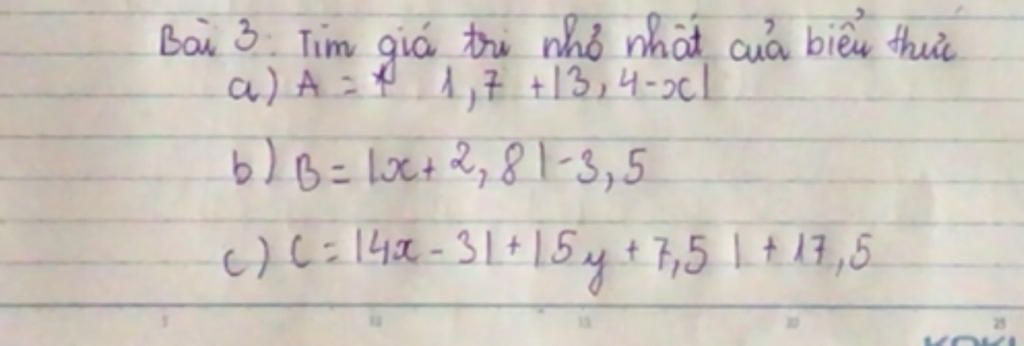 Bài 3: Tìm giá trị nhỏ nhất của biểu thức
a) A = 1,7 + |3,4 - x|
b) B = |x + 2,8| - 3,5
c) C = |4x - 3| + |5y + 7,5| + 17,5
5 10 15 20 25